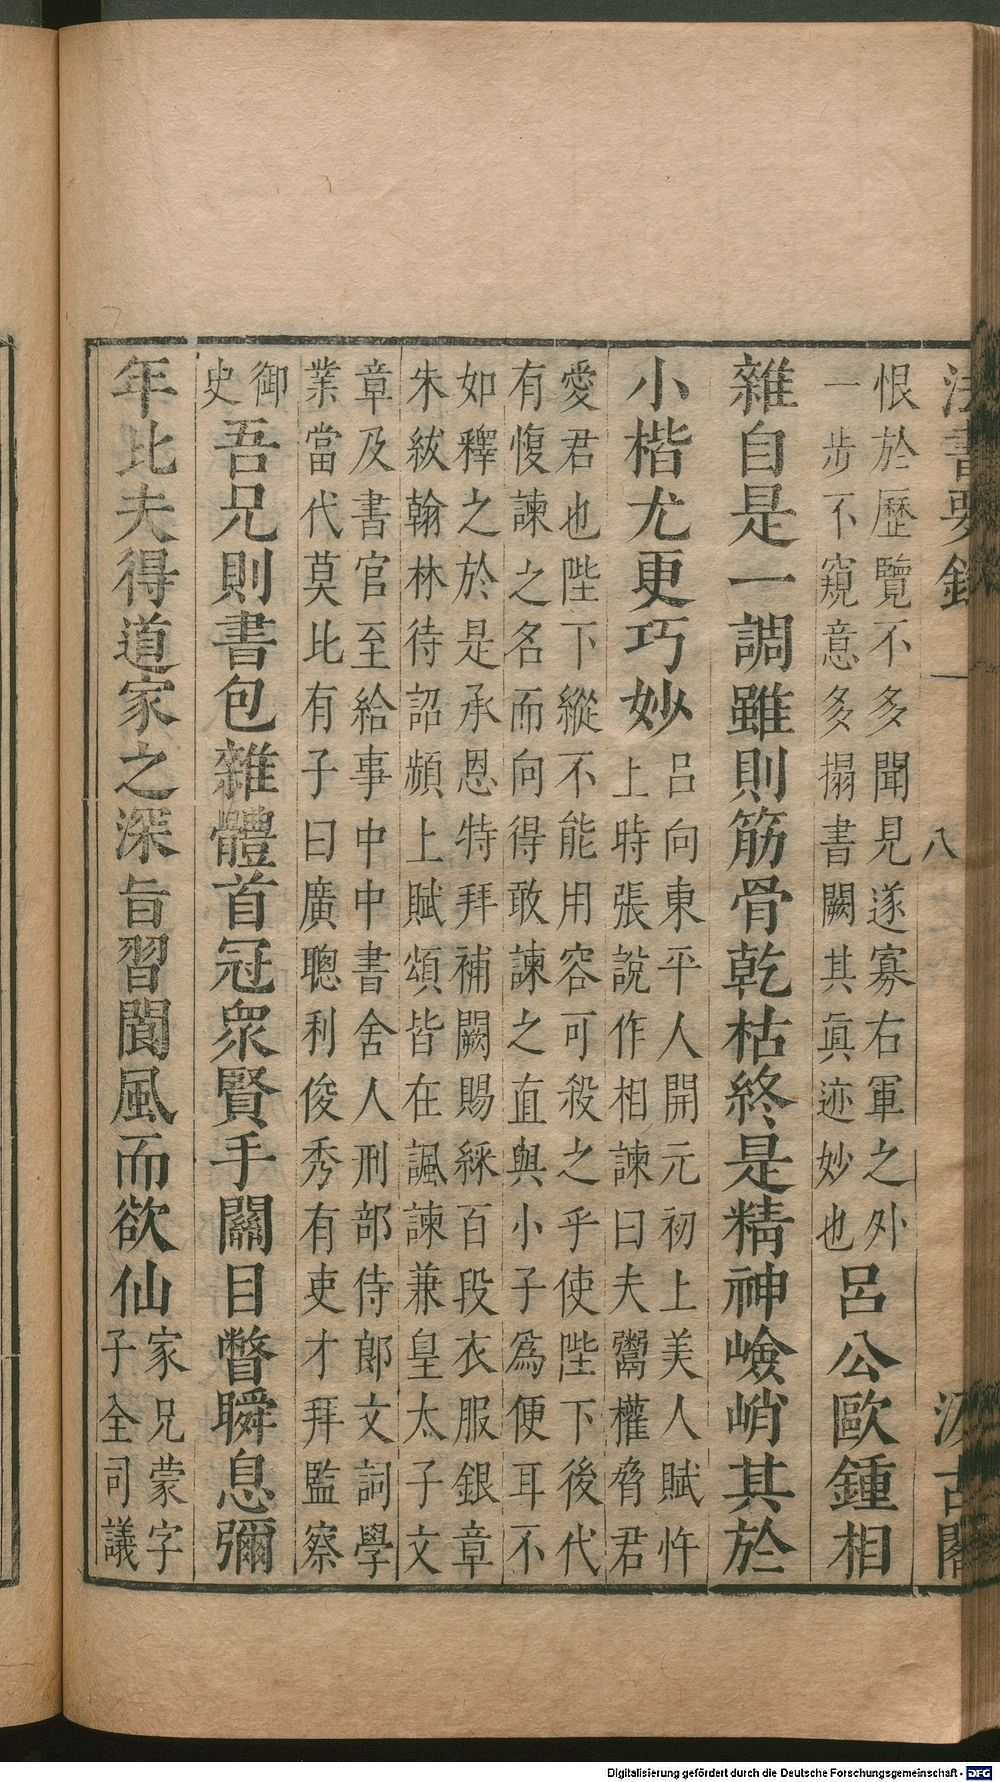 法書要錄 一 八 汲古閣
恨於歷覽不多聞見遂寡右軍之外
一步不窺意多搨書闕其眞迹妙也
呂公歐鍾相
雜自是一調雖則筋骨乾枯終是精神嶮峭其於
小楷尤更巧妙
呂向東平人開元初上美人賦忤
上時張說作相諫曰夫鬻權脅君
愛君也陛下縱不能用容可殺之乎使陛下後代
有愎諫之名而向得敢諫之直與小子為便耳不
如釋之於是承恩特拜補闕賜綵百段衣服銀章
朱紱翰林待詔頻上賦頌皆在諷諫兼皇太子文
章及書官至給事中中書舍人刑部侍郎文詞學
業當代莫比有子曰廣聰利俊秀有吏才拜監察
御
史
吾兄則書包雜體首冠衆賢手關目瞥瞬息彌
年比夫得道家之深旨習閬風而欲仙
家兄蒙字
子全司議